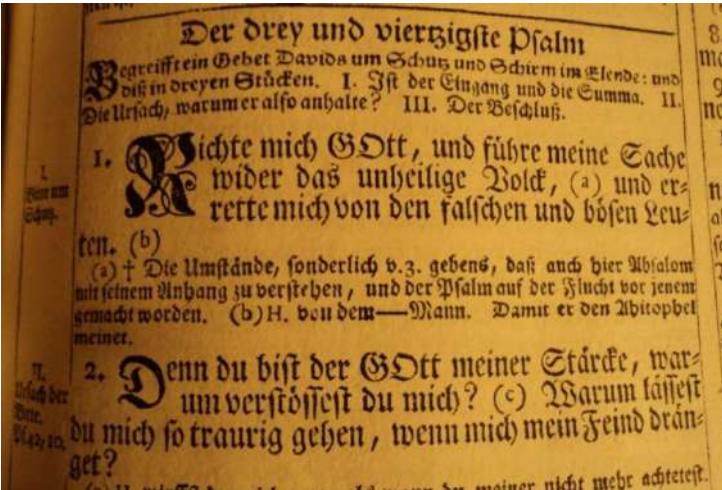 Der drey und viertzigste Psalm
Begreifft ein Gebet Davids um Schutz und Schirm im Elende: und
diß in dreyen Stücken. I. Ist der Eingang und die Summa. II.
Die Ursach, warum er also anhalte? III. Der Beschluß.
1. Richte mich GOtt, und führe meine Sache
wider das unheilige Volck, (a) und er-
rette mich von den falschen und bösen Leu-
ten. (b)
I.
Bitte um
Schutz.
(a) † Die Umstände, sonderlich v. 3. gebens, daß auch hier Absalom
mit seinem Anhang zu verstehen, und der Psalm auf der Flucht vor jenem
gemacht worden. (b) H. von dem — Mann. Damit er den Ahitophel
meinet.
2. Denn du bist der GOtt meiner Stärcke, war-
um verstössest du mich? (c) Warum lässest
du mich so traurig gehen, wenn mich mein Feind drän-
get?
II.
Ursach der
Bitte.
Ps. 42, 10.
meiner nicht mehr achtetest.